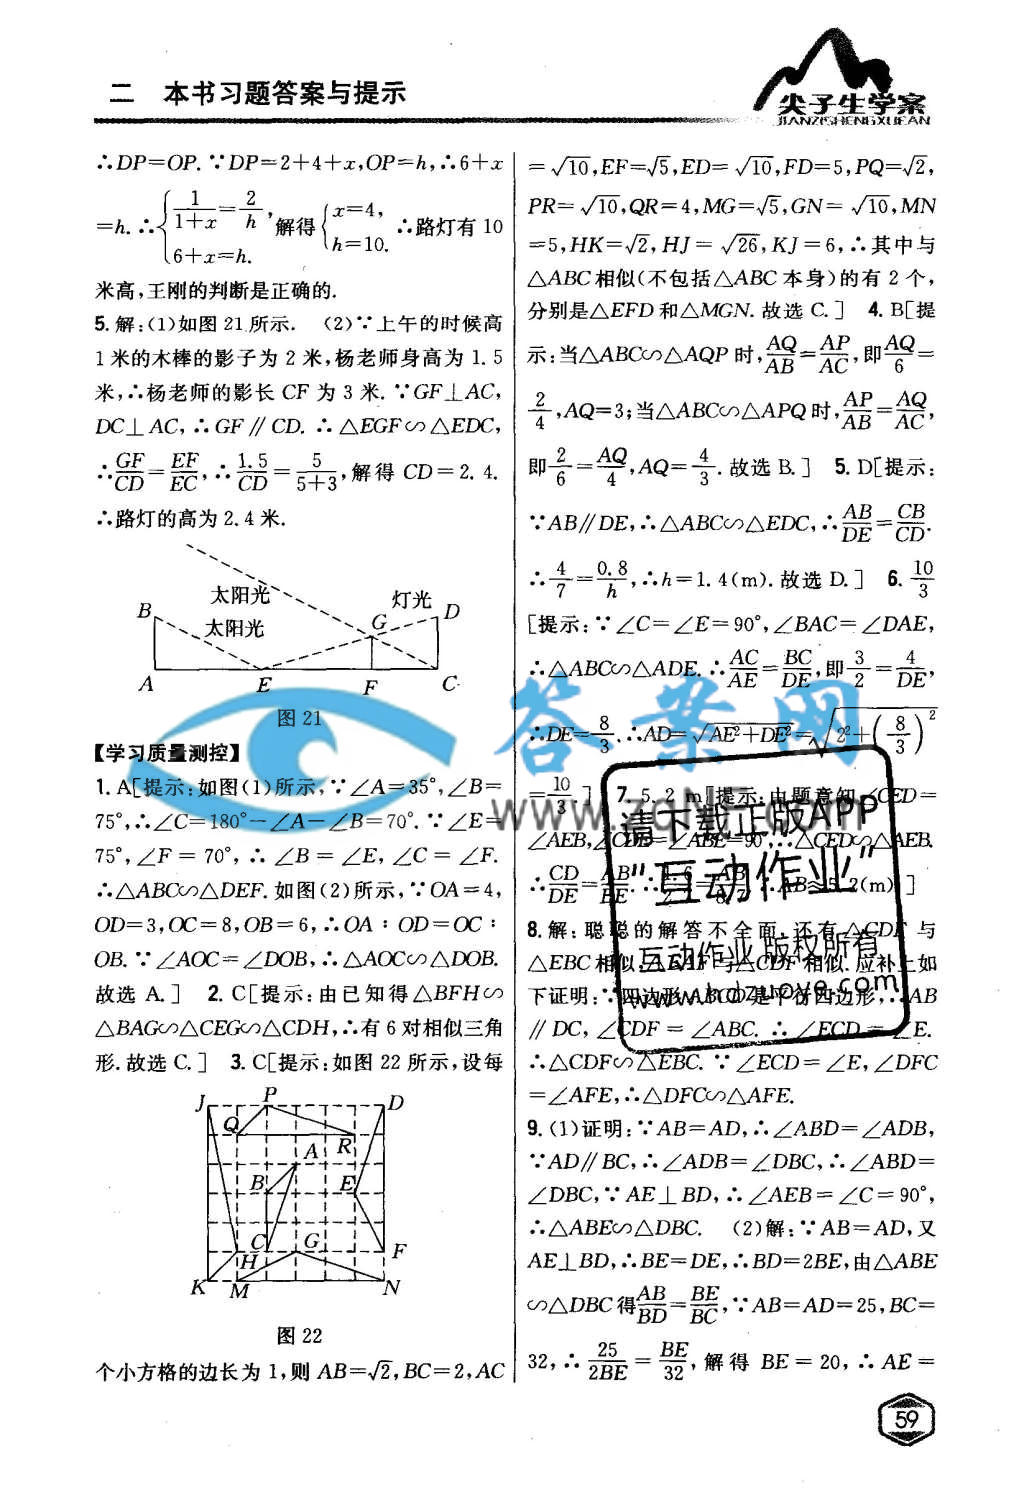 二 本书习题答案与提示
尖子生学案
JIANZISHENGXUEAN
∴DP=OP.∵DP=2+4+x,OP=h,∴6+x
=h.∴{1/(1+x)=2/h, 6+x=h. 解得{x=4, h=10. ∴路灯有10
米高,王刚的判断是正确的.
5.解:(1)如图21所示. (2)∵上午的时候高
1米的木棒的影子为2米,杨老师身高为1.5
米,∴杨老师的影长CF为3米.∵GF⊥AC,
DC⊥AC,∴GF∥CD.∴△EGF∽△EDC,
∴GF/CD=EF/EC,∴1.5/CD=5/(5+3),解得CD=2.4.
∴路灯的高为2.4米.
太阳光
灯光
B
太阳光
G
D
A
E
F
C
图21
【学习质量测控】
1.A[提示:如图(1)所示,∵∠A=35°,∠B=
75°,∴∠C=180°-∠A-∠B=70°.∵∠E=
75°,∠F=70°,∴∠B=∠E,∠C=∠F.
∴△ABC∽△DEF.如图(2)所示,∵OA=4,
OD=3,OC=8,OB=6,∴OA:OD=OC:
OB.∵∠AOC=∠DOB,∴△AOC∽△DOB.
故选A.] 2.C[提示:由已知得△BFH∽
△BAG∽△CEG∽△CDH,∴有6对相似三角
形.故选C.] 3.C[提示:如图22所示,设每
J
P
D
Q
R
A
B
E
C
G
F
H
K
M
N
图22
个小方格的边长为1,则AB=√2,BC=2,AC
=√10,EF=√5,ED=√10,FD=5,PQ=√2,
PR=√10,QR=4,MG=√5,GN=√10,MN
=5,HK=√2,HJ=√26,KJ=6,∴其中与
△ABC相似(不包括△ABC本身)的有2个,
分别是△EFD和△MGN.故选C.] 4.B[提
示:当△ABC∽△AQP时,AQ/AB=AP/AC,即AQ/6=
2/4,AQ=3;当△ABC∽△APQ时,AP/AB=AQ/AC,
即2/6=AQ/4,AQ=4/3.故选B.] 5.D[提示:
∵AB∥DE,∴△ABC∽△EDC,∴AB/DE=CB/CD.
∴4/7=0.8/h,∴h=1.4(m).故选D.] 6.10/3
[提示:∵∠C=∠E=90°,∠BAC=∠DAE,
∴△ABC∽△ADE.∴AC/AE=BC/DE,即3/2=4/DE,
∴DE=8/3.∴AD=√(AE²+DE²)=√(2²+(8/3)²)
=10/3.] 7.5.2 m[提示:由题意知∠CED=
∠AEB,∠CDE=∠ABE=90°,∴△CED∽△AEB.
∴CD/DE=AB/BE.∴ ∴AB≈5.2(m).]
8.解:聪聪的解答不全面,还有△CDF与
△EBC相似,△EAF与△CDF相似.应补上如
下证明:∵四边形ABCD是平行四边形,∴AB
∥DC,∠CDF=∠ABC.∴∠ECD=∠E.
∴△CDF∽△EBC.∵∠ECD=∠E,∠DFC
=∠AFE,∴△DFC∽△AFE.
9.(1)证明:∵AB=AD,∴∠ABD=∠ADB,
∵AD∥BC,∴∠ADB=∠DBC,∴∠ABD=
∠DBC,∵AE⊥BD,∴∠AEB=∠C=90°,
∴△ABE∽△DBC. (2)解:∵AB=AD,又
AE⊥BD,∴BE=DE,∴BD=2BE,由△ABE
∽△DBC得AB/BD=BE/BC,∵AB=AD=25,BC=
32,∴25/2BE=BE/32,解得BE=20,∴AE=
答案网
请下载正版APP
“互动作业”
互动作业 版权所有
www.hdzuoye.com
59